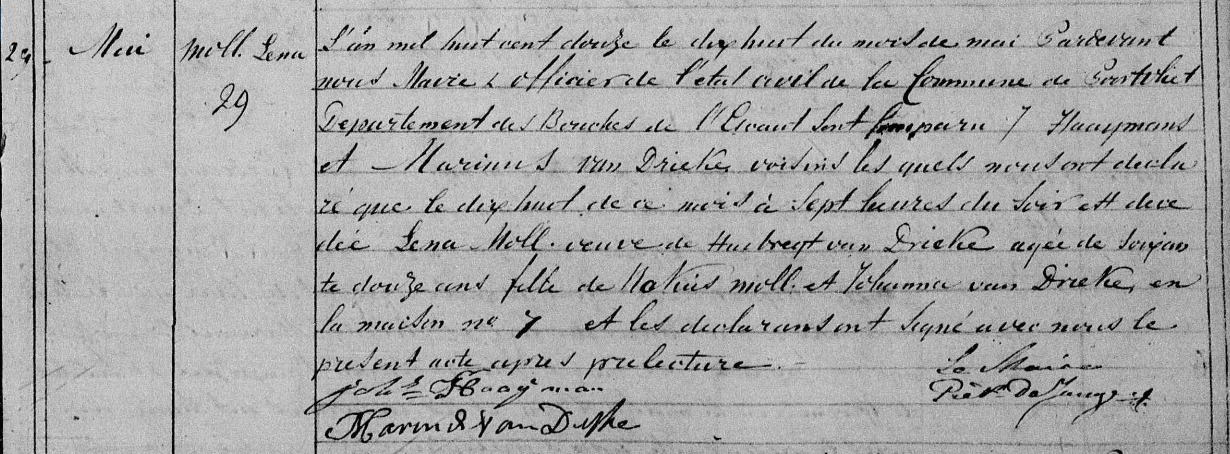 29 Mai Moll. Lena
29
L'an mil huit cent douze le dix huit du mois de mai Pardevant
nous Maire & officier de l'etat civil de la Commune de Poortvliet
Departement des Bouches de l'Escaut sont Comparu J Haaymans
et Marinus van Drieke voisins les quels nous ont decla
ré que le dix huit de ce mois à sept heures du soir est dece
dée Lena Moll. veuve de Huibregt van Drieke agée de soixan
te douze ans fille de moll. et Johanna van Drieke, en
la maison no 7 et les declarans ont signé avec nous le
present acte apres prelecture.
Le Maire
Joh Haayman
Piet De Jonge
Marin van D